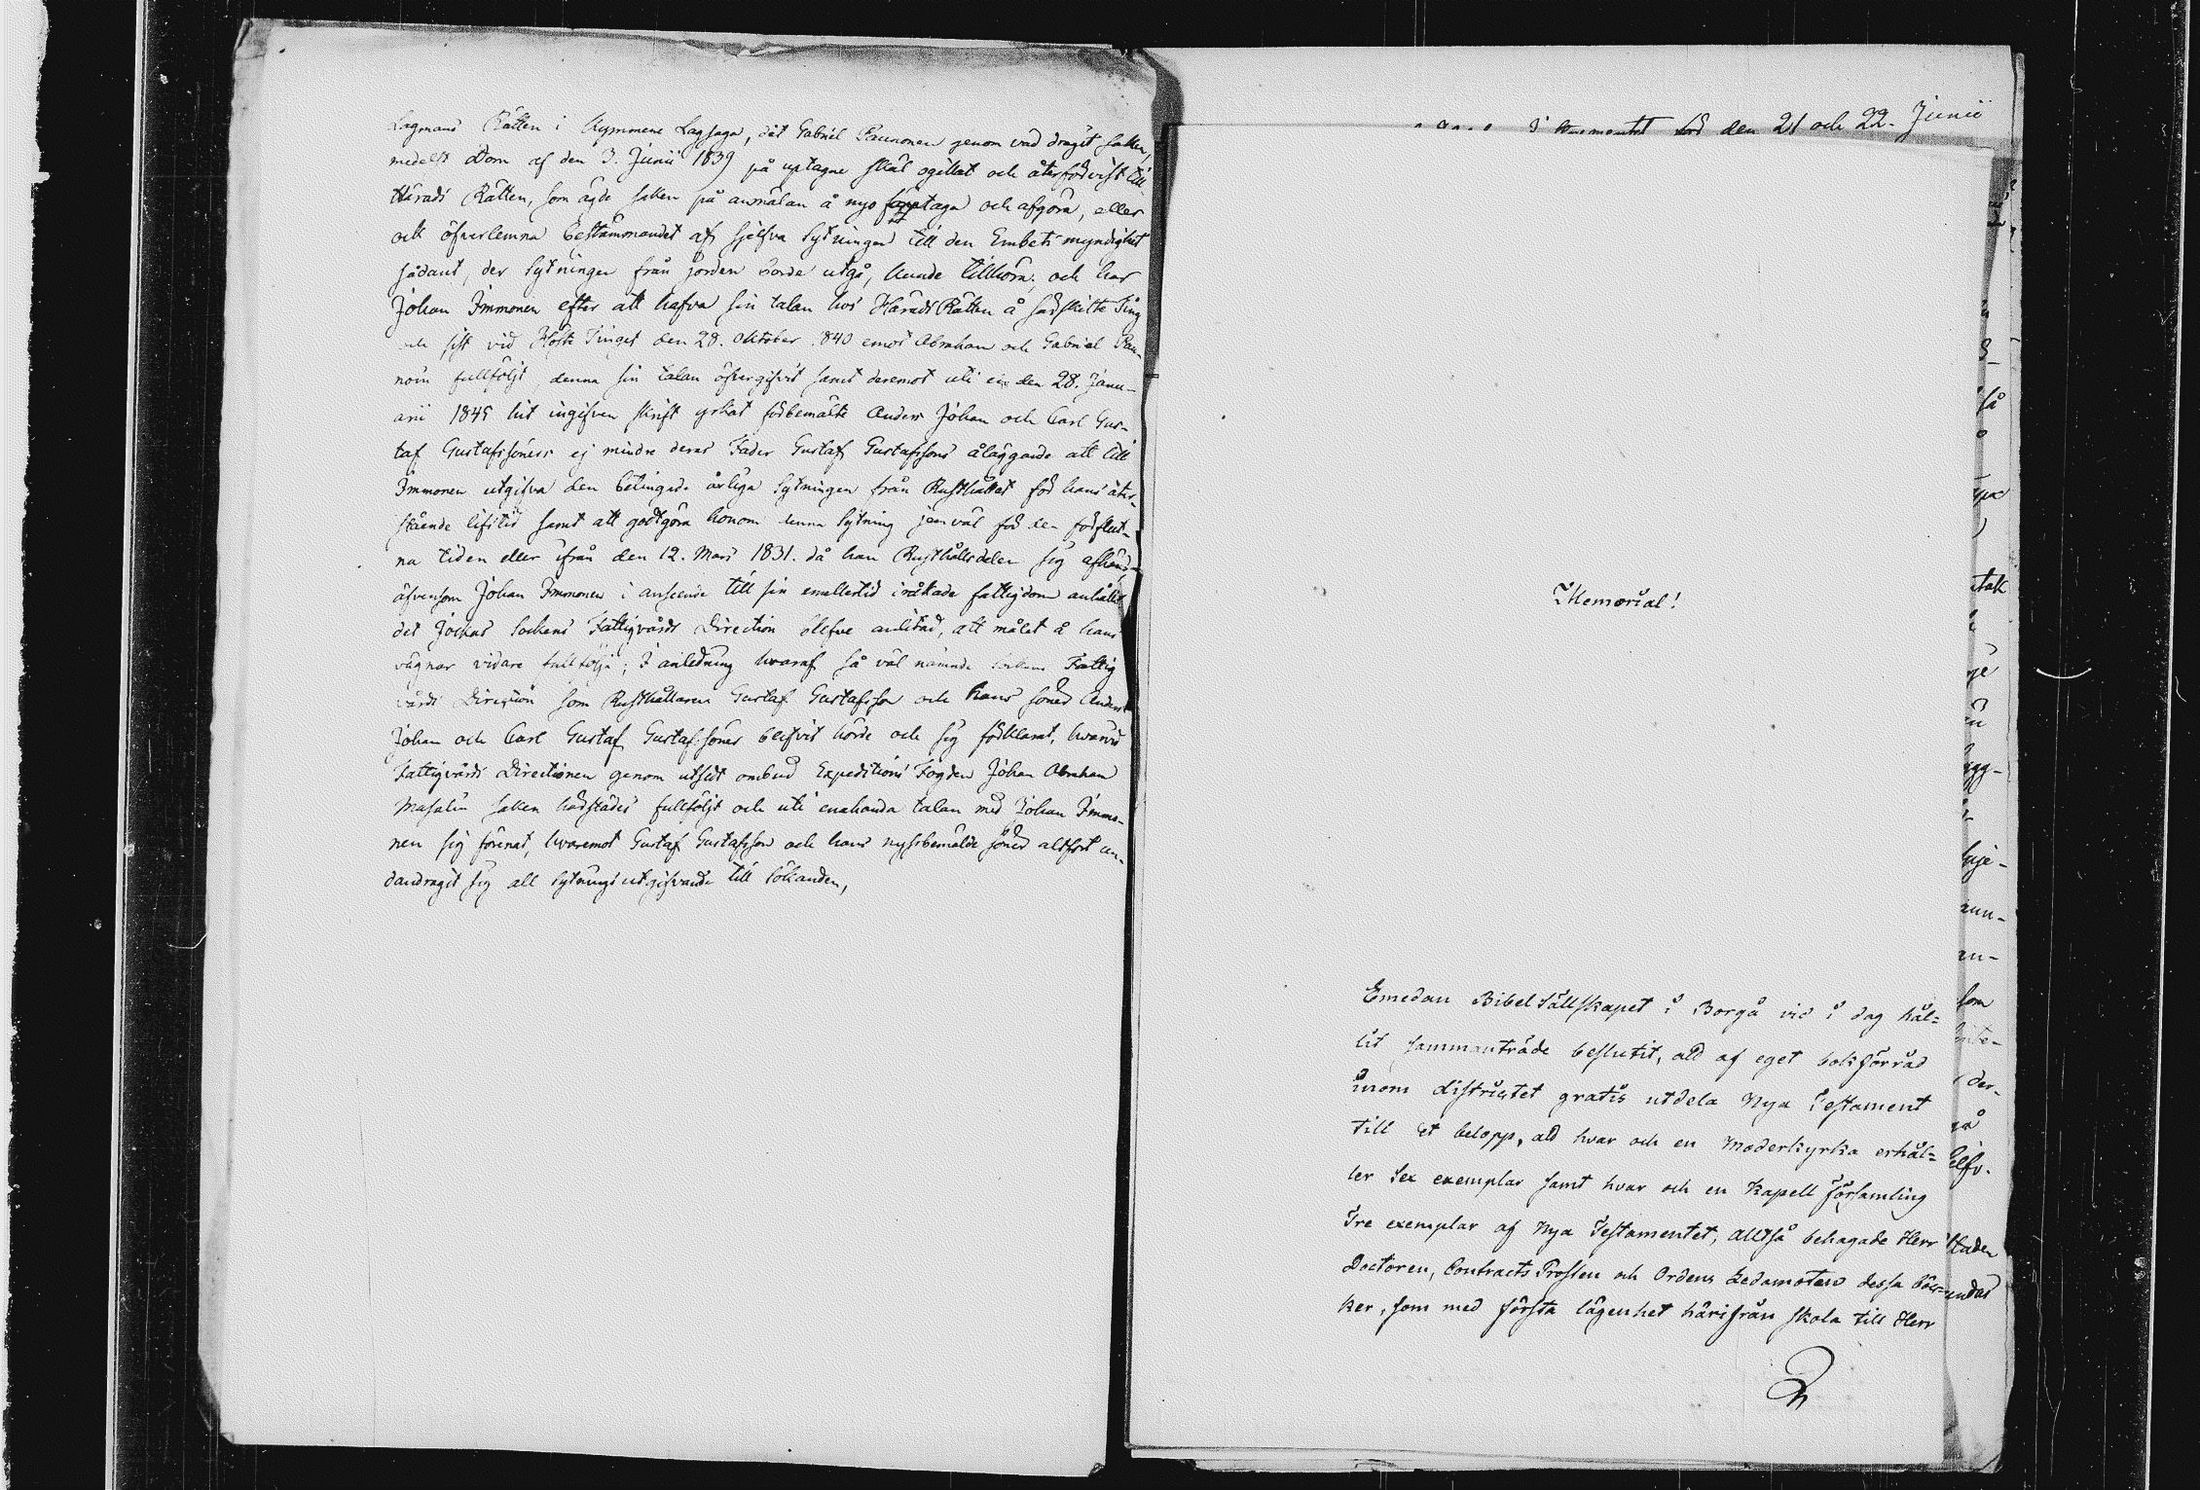 Lagmans Rätten i Kymmene Lagsaga, dit Gabriel Paunonen genom vad dragit saken,
medelst dom af den 3. Junii 1839 på uptagne skäl ogillat och återförvist till
Härads Rätten, som ägde saken på anmälan å nyo upptaga och afgöra, eller
ock öfverlemna bestämmandet af sjelfva sytningen till den Embets myndighet
sådant, der sytningen från jorden borde utgå, kunde tillhöra; och har
Johan Immonen efter att hafva sin talan hos HäradsRätten å särskilte Ting
och sist vid Höste Tinget den 28. Oktober 1840 emot Abraham och Gabriel Pau-
noin fullföljt, denna sin talan öfvergifvit samt deremot uti en den 28. Janu-
arii 1845 hit ingifven skrift yrkat förbemälte Anders Johan och Carl Gus-
taf Gustafssöners ej mindre deras Fader Gustaf Gustafssons åläggande att till
Immonen utgifva den betingade årliga sytningen från Rusthållet för hans åter-
stående lifstid samt att godtgöra honom denna sytning jemväl för den förflut-
na tiden eller ifrån den 12. Mars 1831. då han Rusthållsdelen sig afhändt,
äfvensom Johan Immonen i anseende till sin emellertid iråkade fattigdom anhållit
det Jockas Sockens Fattigvårds Direction blefve anlitad, att målet å hans
vägnar vidare fullfölja; I anledning hvaraf så väl nämnde Sockens Fattig
vårds Direction som Rusthållaren Gustaf Gustafsson och hans söner Anders
Johan och Carl Gustaf Gustafssöner blifvit hörde och sig förklarat, hvarvid
Fattigvårds Directionen genom utsedt ombud Expeditions Fogden Johan Abraham
Masalin saken härstädes fullföljt och uti enahanda talan med Johan Immo-
nen sig förenat, hvaremot Gustaf Gustafsson och hans nyssbemälde söner altfort un-
dandragit sig all sytnings utgifvande till sökanden,
den 21 och 22. Junii
Memorial!
Emedan BibelSällskapet i Borgå vid i dag hål=
lit sammanträde beslutit, att af eget bokförråd
inom districtet gratis utdela Nya Testament
till et belopp, att hvar och en Moderkyrka erhål=
ler Sex exemplar samt hvar och en Kapell församling
Tre exemplar af Nya Testamentet; alltså behagade Herr
Doctoren, Contracts Prosten och Ordens Ledamoten dessa Böc=
ker, som med första lägenhet härifrån skola till Herr